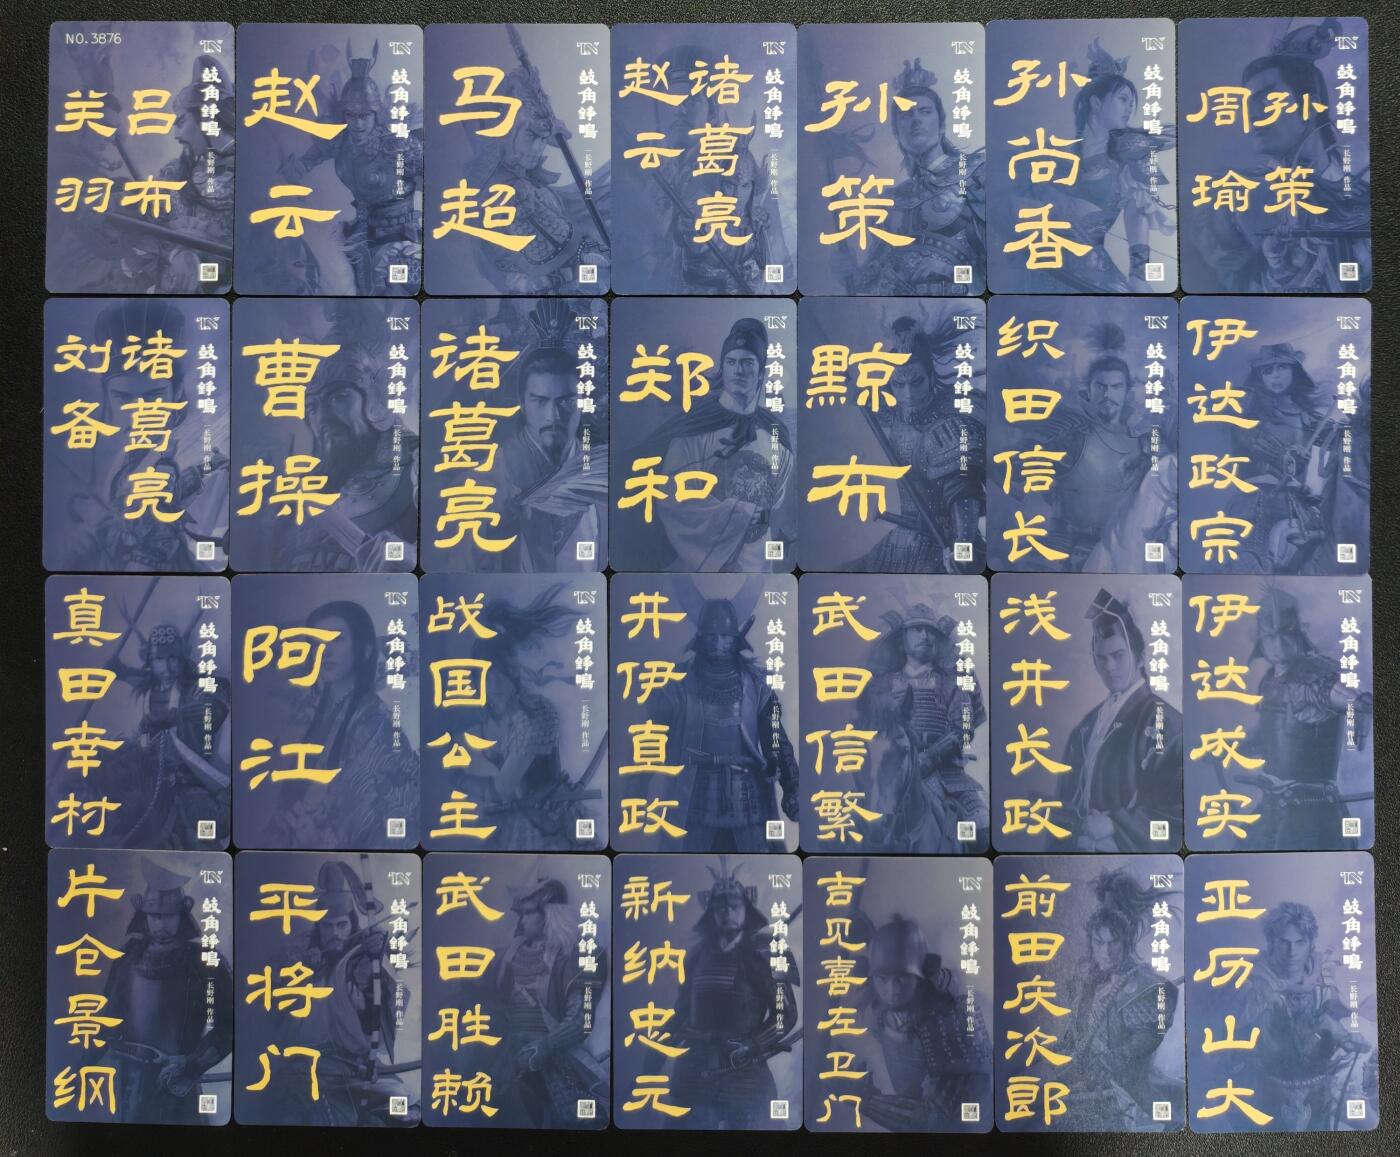 NO.3876
吕布
关羽
鼓角铮鸣
长野刚 作品
赵云
鼓角铮鸣
长野刚 作品
马超
鼓角铮鸣
长野刚 作品
诸葛亮
赵云
鼓角铮鸣
长野刚 作品
孙策
鼓角铮鸣
长野刚 作品
孙尚香
鼓角铮鸣
长野刚 作品
孙策
周瑜
鼓角铮鸣
长野刚 作品
诸葛亮
刘备
鼓角铮鸣
长野刚 作品
曹操
鼓角铮鸣
长野刚 作品
诸葛亮
鼓角铮鸣
长野刚 作品
郑和
鼓角铮鸣
长野刚 作品
黥布
鼓角铮鸣
长野刚 作品
织田信长
鼓角铮鸣
长野刚 作品
伊达政宗
鼓角铮鸣
长野刚 作品
真田幸村
鼓角铮鸣
长野刚 作品
阿江
鼓角铮鸣
长野刚 作品
战国公主
鼓角铮鸣
长野刚 作品
井伊直政
鼓角铮鸣
长野刚 作品
武田信繁
鼓角铮鸣
长野刚 作品
浅井长政
鼓角铮鸣
长野刚 作品
伊达成实
鼓角铮鸣
长野刚 作品
片仓景纲
鼓角铮鸣
长野刚 作品
平将门
鼓角铮鸣
长野刚 作品
武田胜赖
鼓角铮鸣
长野刚 作品
新纳忠元
鼓角铮鸣
长野刚 作品
吉见喜左卫门
鼓角铮鸣
长野刚 作品
前田庆次郎
鼓角铮鸣
长野刚 作品
亚历山大
鼓角铮鸣
长野刚 作品